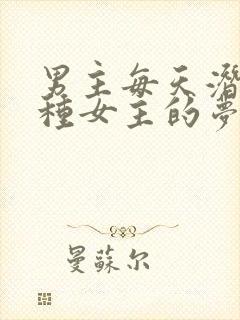 男主每天潛
種女主的夢
曼蘇尔